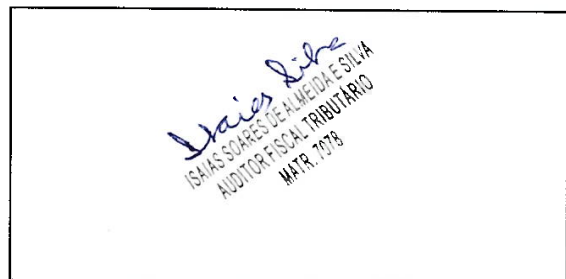 Isaias Silva
ISAIAS SOARES DE ALMEIDA E SILVA
AUDITOR FISCAL TRIBUTÁRIO
MATR. 7978